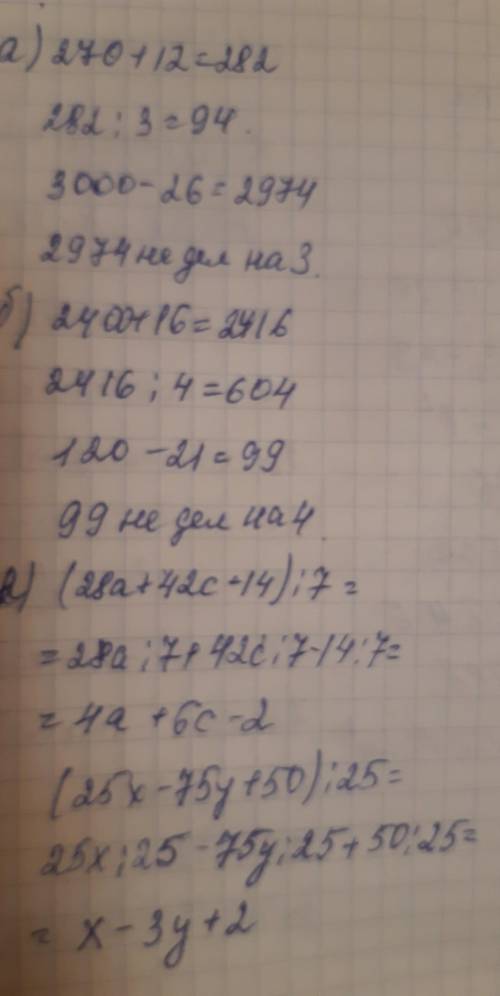 а) 270+12=282
282:3=94.
3000-26=2974
2974 не дел на 3.
б) 2400+16=2416
2416:4=604
120-21=99
99 не дел на 4.
в) (28a+42c-14):7=
=28a:7+42c:7-14:7=
=4a+6c-2
(25x-75y+50):25=
25x:25-75y:25+50:25=
=x-3y+2